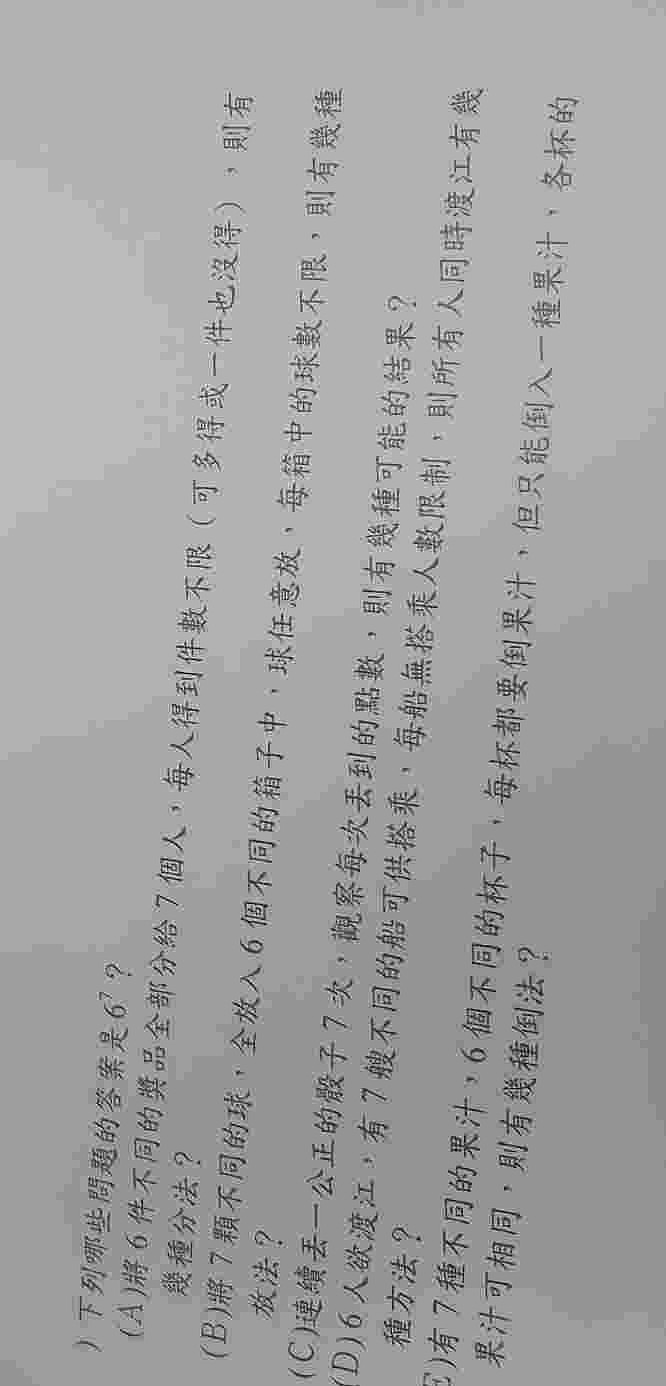 )下列哪些問題的答案是6⁷?
(A)將6件不同的獎品全部分給7個人,每人得到件數不限(可多得或一件也沒得),則有
幾種分法?
(B)將7顆不同的球,全放入6個不同的箱子中,球任意放,每箱中的球數不限,則有幾種
放法?
(C)連續丟一公正的骰子7次,觀察每次丟到的點數,則有幾種可能的結果?
(D)6人欲渡江,有7艘不同的船可供搭乘,每船無搭乘人數限制,則所有人同時渡江有幾
種方法?
E)有7種不同的果汁,6個不同的杯子,每杯都要倒果汁,但只能倒入一種果汁,各杯的
果汁可相同,則有幾種倒法?